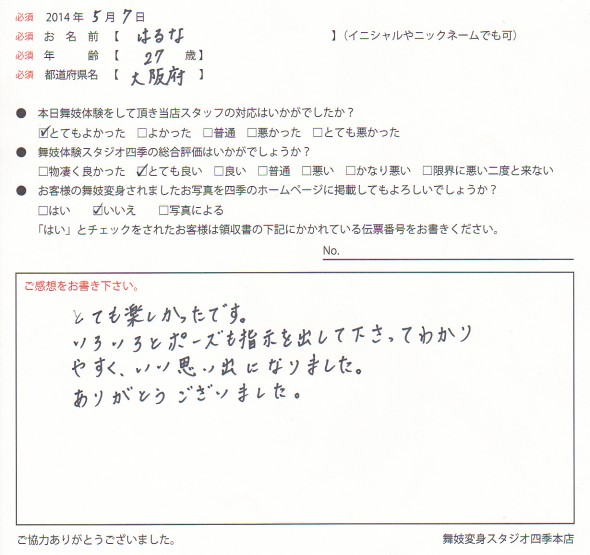 必須 2014年 5月 7日
必須 お名前【 はるな 】(イニシャルやニックネームでも可)
必須 年齢【 27 歳】
必須 都道府県名【 大阪府 】
● 本日舞妓体験をして頂き当店スタッフの対応はいかがでしたか?
☑とてもよかった □よかった □普通 □悪かった □とても悪かった
● 舞妓体験スタジオ四季の総合評価はいかがでしょうか?
□物凄く良かった ☑とても良い □良い □普通 □悪い □かなり悪い □限界に悪い二度と来ない
● お客様の舞妓変身されましたお写真を四季のホームページに掲載してもよろしいでしょうか?
□はい ☑いいえ □写真による
「はい」とチェックをされたお客様は領収書の下記にかかれている伝票番号をお書きください。
No.
ご感想をお書き下さい。
とても楽しかったです。
いろいろとポーズも指示を出して下さってわかり
やすく、いい思い出になりました。
ありがとうございました。
ご協力ありがとうございました。 舞妓変身スタジオ四季本店